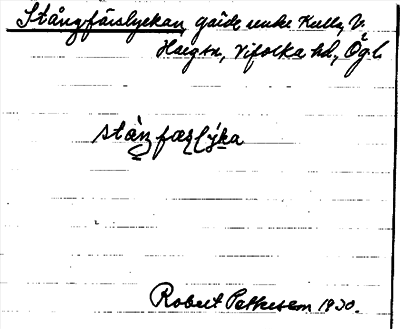 Stångfärslyckan, gärde under Kulla, V.
Harg sn, Vifolka hd, Ögl.
stàn fæslýka
Robert Pettersson 1920.